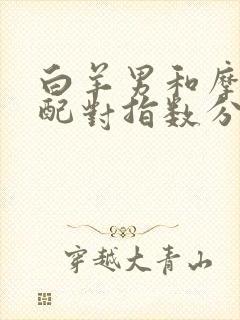 白羊男和摩
配對指数分
穿越大青山